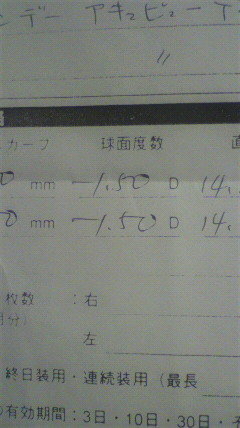 デー アキュビュー
〃
カーブ 球面度数 直
0 mm -1.50 D 14.
0 mm -1.50 D 14.
枚数 : 右
左
終日装用・連続装用 (最長
有効期間 : 3日・10日・30日・